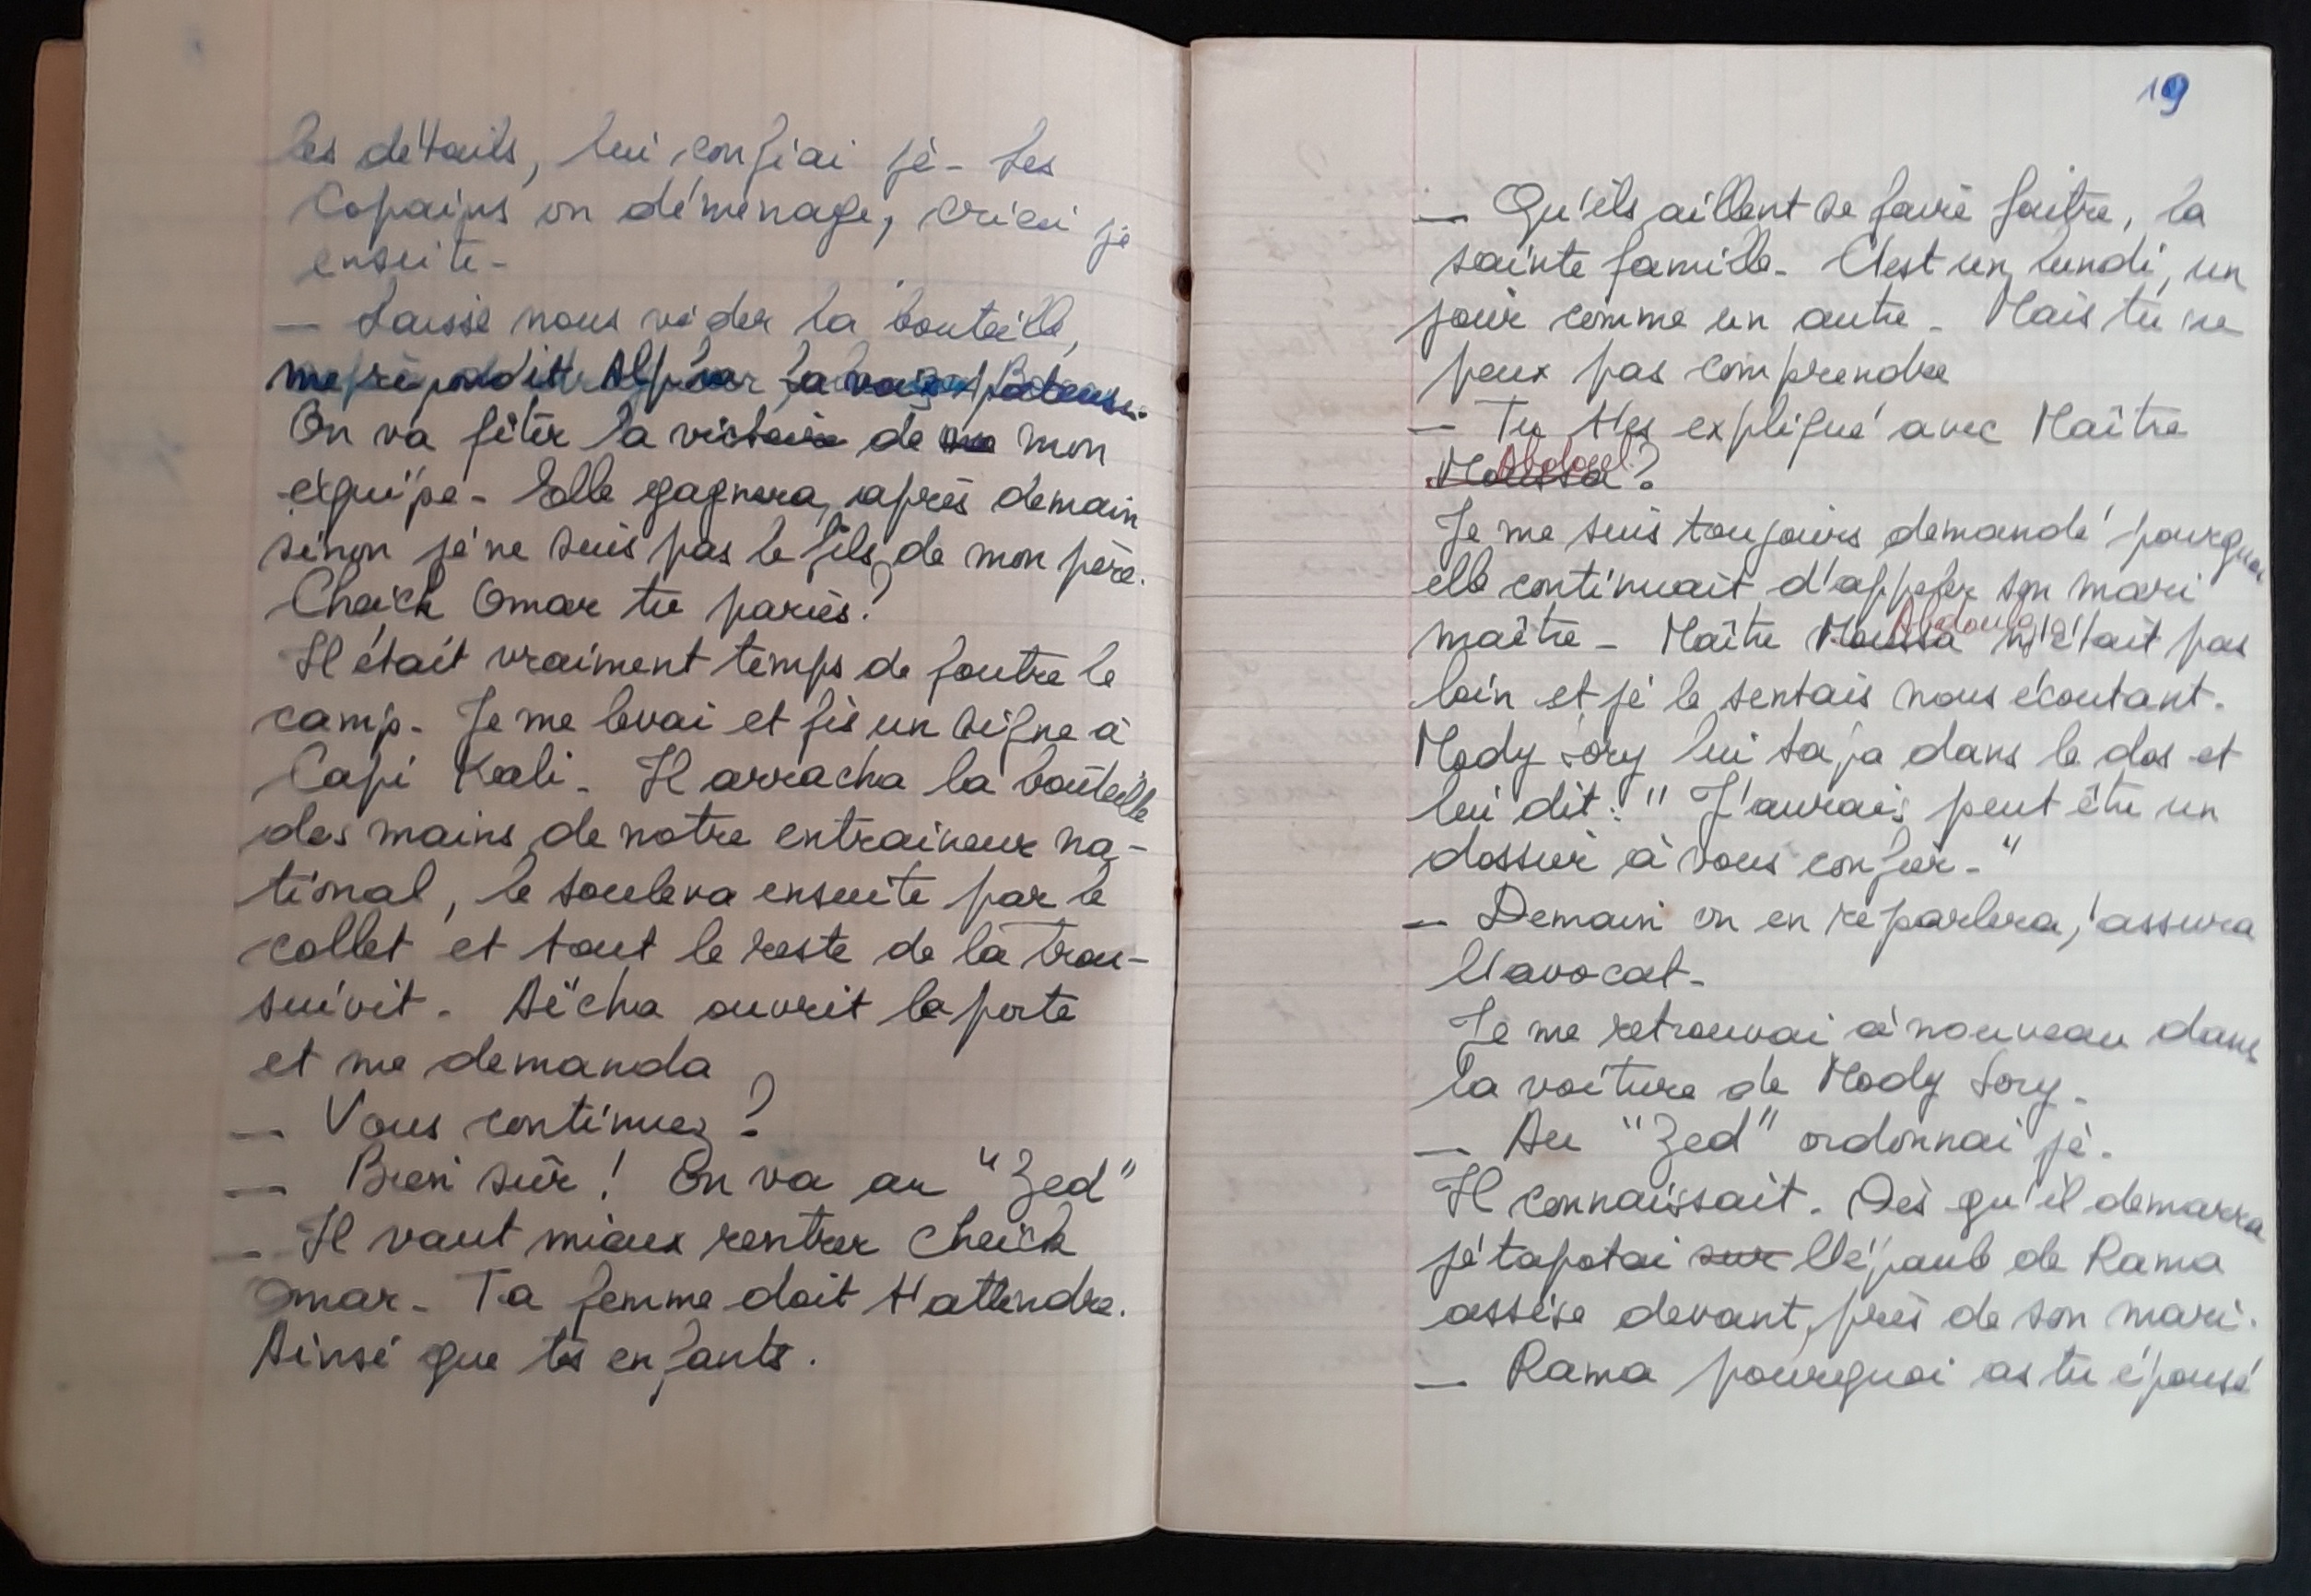 les détails, lui confiai je - Les
copains on déménage, criai je
ensuite -
— Laisse nous vider la bouteille,
me répondit Alpha la voix pâteuse.
On va fêter la victoire de mon
équipe - Elle gagnera, après demain
sinon je ne suis pas le fils de mon père.
Cheick Omar tu paries?
Il était vraiment temps de foutre le
camp - Je me levai et fis un signe à
Capi Kali - Il arracha la bouteille
des mains de notre entraineur na-
tional, le souleva ensuite par le
collet et tout le reste de la troupe
suivit. Aïcha ouvrit la porte
et me demanda
— Vous continuez?
— Bien sûr! On va au "Zed"
— Il vaut mieux rentrer Cheick
Omar - Ta femme doit t'attendre.
Ainsi que tes enfants.
19
— Qu'ils aillent se faire foutre, la
sainte famille - C'est un lundi, un
jour comme un autre - Mais tu ne
peux pas comprendre
— Tu t'es expliqué avec Maître
Abdoul
Moussa?
Je me suis toujours demandé pourquoi
elle continuait d'appeler son mari
maître - Maître Moussa n'était pas
loin et je le sentais nous écoutant.
Mody Sory lui tapa dans le dos et
lui dit: "J'aurais peut être un
dossier à vous confier - "
— Demain on en reparlera, assura
l'avocat -
Je me retrouvai à nouveau dans
la voiture de Mody Sory -
— Au "Zed" ordonnai je.
Il connaissait. Dès qu'il demarra
je tapotai sur l'épaule de Rama
assise devant, près de son mari.
— Rama pourquoi as tu épousé